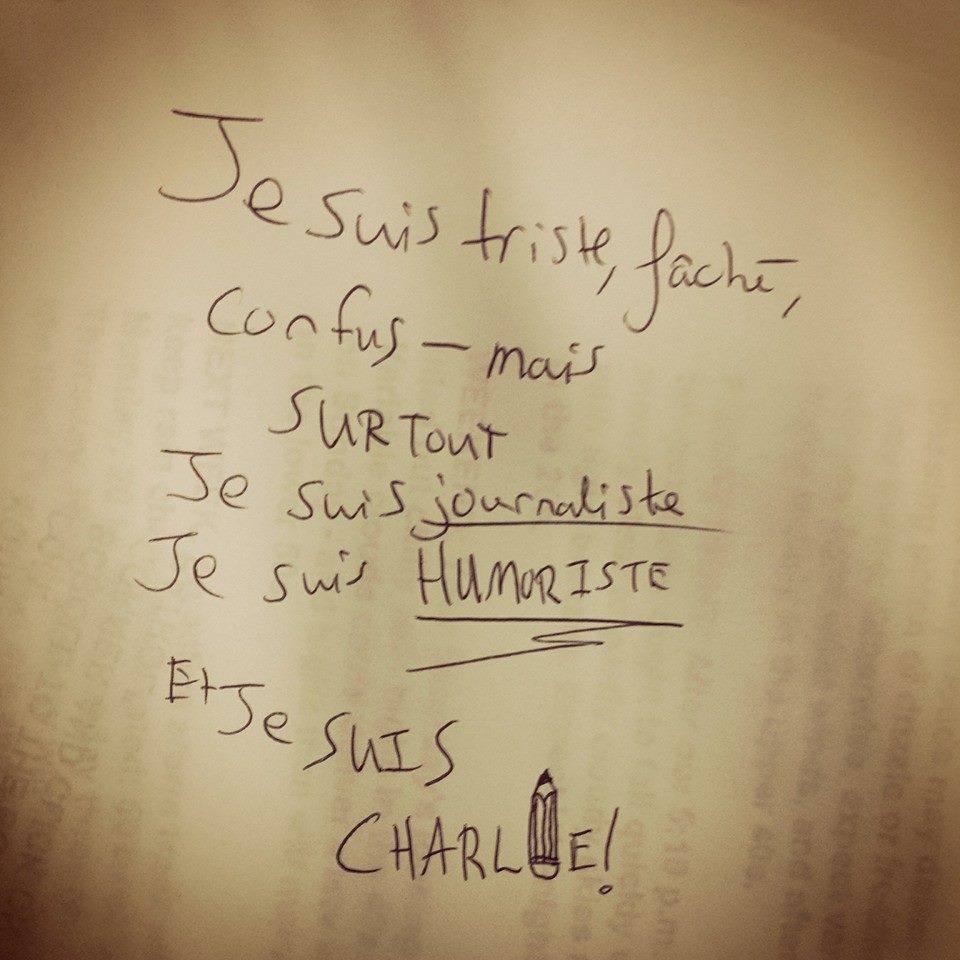 Je suis triste, fâché,
confus – mais
SURTOUT
Je suis journaliste
Je suis HUMORISTE
Et Je SUIS
CHARLIE!